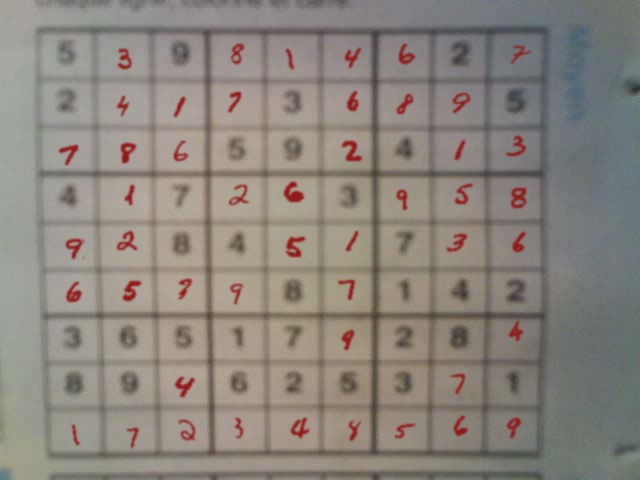 chaque ligne, colonne et carré.
Moyen
5 3 9 8 1 4 6 2 7
2 4 1 7 3 6 8 9 5
7 8 6 5 9 2 4 1 3
4 1 7 2 6 3 9 5 8
9 2 8 4 5 1 7 3 6
6 5 3 9 8 7 1 4 2
3 6 5 1 7 9 2 8 4
8 9 4 6 2 5 3 7 1
1 7 2 3 4 8 5 6 9